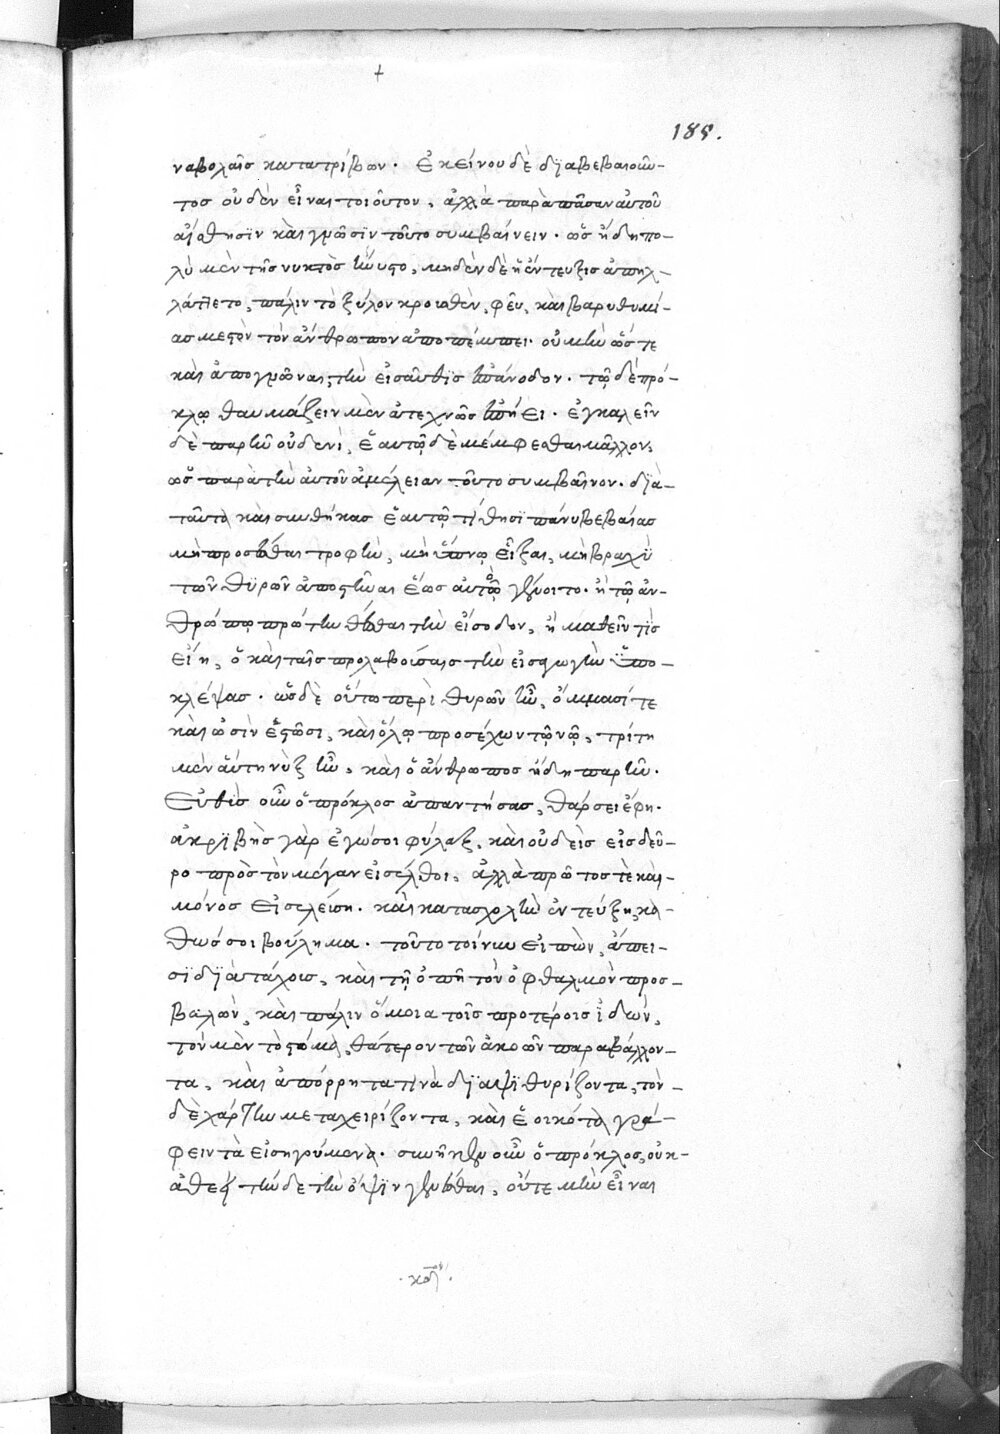 185.
ναβολαῖς κατατρίβων. Ἐκείνου δὲ διαβεβαιουμ-
τος οὐδὲν εἶναι τοιοῦτον, ἀλλὰ παρὰ πᾶσαν αὐτοῦ
αἴσθησϊν καὶ γνῶσϊν τοῦτο συμβαίνειν. ὡς ἤδη πο-
λὺ μὲν τῆς νυκτὸς ἦν, μηδὲν δὲ ἡ ἔντευξις ἀπηλ-
λάττετο, πάλιν τὸ ξύλον κροισθὲν, φεῦ, καὶ βαρυθυμί-
ας μεστὸν τὸν ἄνθρωπον ἀποπέμπει. οὐ μὴν ὥστε
καὶ ἀπογνῶναι τὴν εἰσαῦθις ἐπάνοδον. τῷ δὲ πρό-
κλῳ θαυμάζειν μὲν ἀτεχνῶς ἐπῄει. ἐγκαλεῖν
δὲ παρῆν οὐδενὶ, ἑαυτῷ δὲ μέμφεσθαι μᾶλλον,
ὡς παρὰ τὴν αὐτοῦ ἀμέλειαν τοῦτο συμβαῖνον. διὰ
ταῦτα καὶ συνθήκας ἑαυτῷ τίθησϊ πάνυ βεβαίας
μὴ προσέσθαι τροφὴν, μὴ ὕπνῳ εἶξαι, μὴ βραχὺ
τῶν θυρῶν ἀποστῆναι ἕως αὐτῷ γένοιτο. ἢ τῷ ἀν-
θρώπῳ πρώτην θέσθαι τὴν εἴσοδον, ἢ μαθεῖν τὶς
εἴη, ὁ καὶ ταῖς προλαβούσαις τὴν εἰσαγωγὴν ὑπο-
κλέψας. ὡς δὲ οὕτω περὶ θυρῶν ἦν, ὄμμασί τε
καὶ ὠσὶν ἑστῶσι, καὶ ὅλῳ προσέχων τῷ νῷ, τρίτη
μὲν αὕτη νὺξ ἦν, καὶ ὁ ἄνθρωπος ἤδη παρῆν.
Εὐθὺς οὖν ὁ πρόκλος ἀπαντήσας, θάρσει ἔφη.
ἀκριβὴς γὰρ ἐγώ σοι φύλαξ, καὶ οὐδεὶς εἰς δεῦ-
ρο πρὸς τὸν μέγαν εἰσέλθοι, ἀλλὰ πρῶτος τὲ καὶ
μόνος εἰσελεύσῃ. καὶ κατασχολὴν ἐντεύξῃ, κα-
θὼς σοι βούλημα. τοῦτο τοίνυν εἰπὼν, ἄπει-
σϊ διὰ τάχους, καὶ τῇ ὀπῇ τὸν ὀφθαλμὸν προσ-
βαλὼν, καὶ πάλιν ὅμοια τοῖς προτέροις ἰδὼν,
τὸν μὲν τὸ στόμα, θάτερον τῶν ἀκοῶν παραβάλλον-
τα, καὶ ἀπόρρητα τινὰ διαψϊθυρίζοντα, τὸν
δὲ χάρτην μεταχειρίζοντα, καὶ ἐοικότα γρά-
φειν τὰ εἰσηγούμενα. συνῆκεν οὖν ὁ πρόκλος, οὐκ
ἀθεεὶ τήνδε τὴν ὄψϊν γενέσθαι, οὔτε μὴν εἶναι